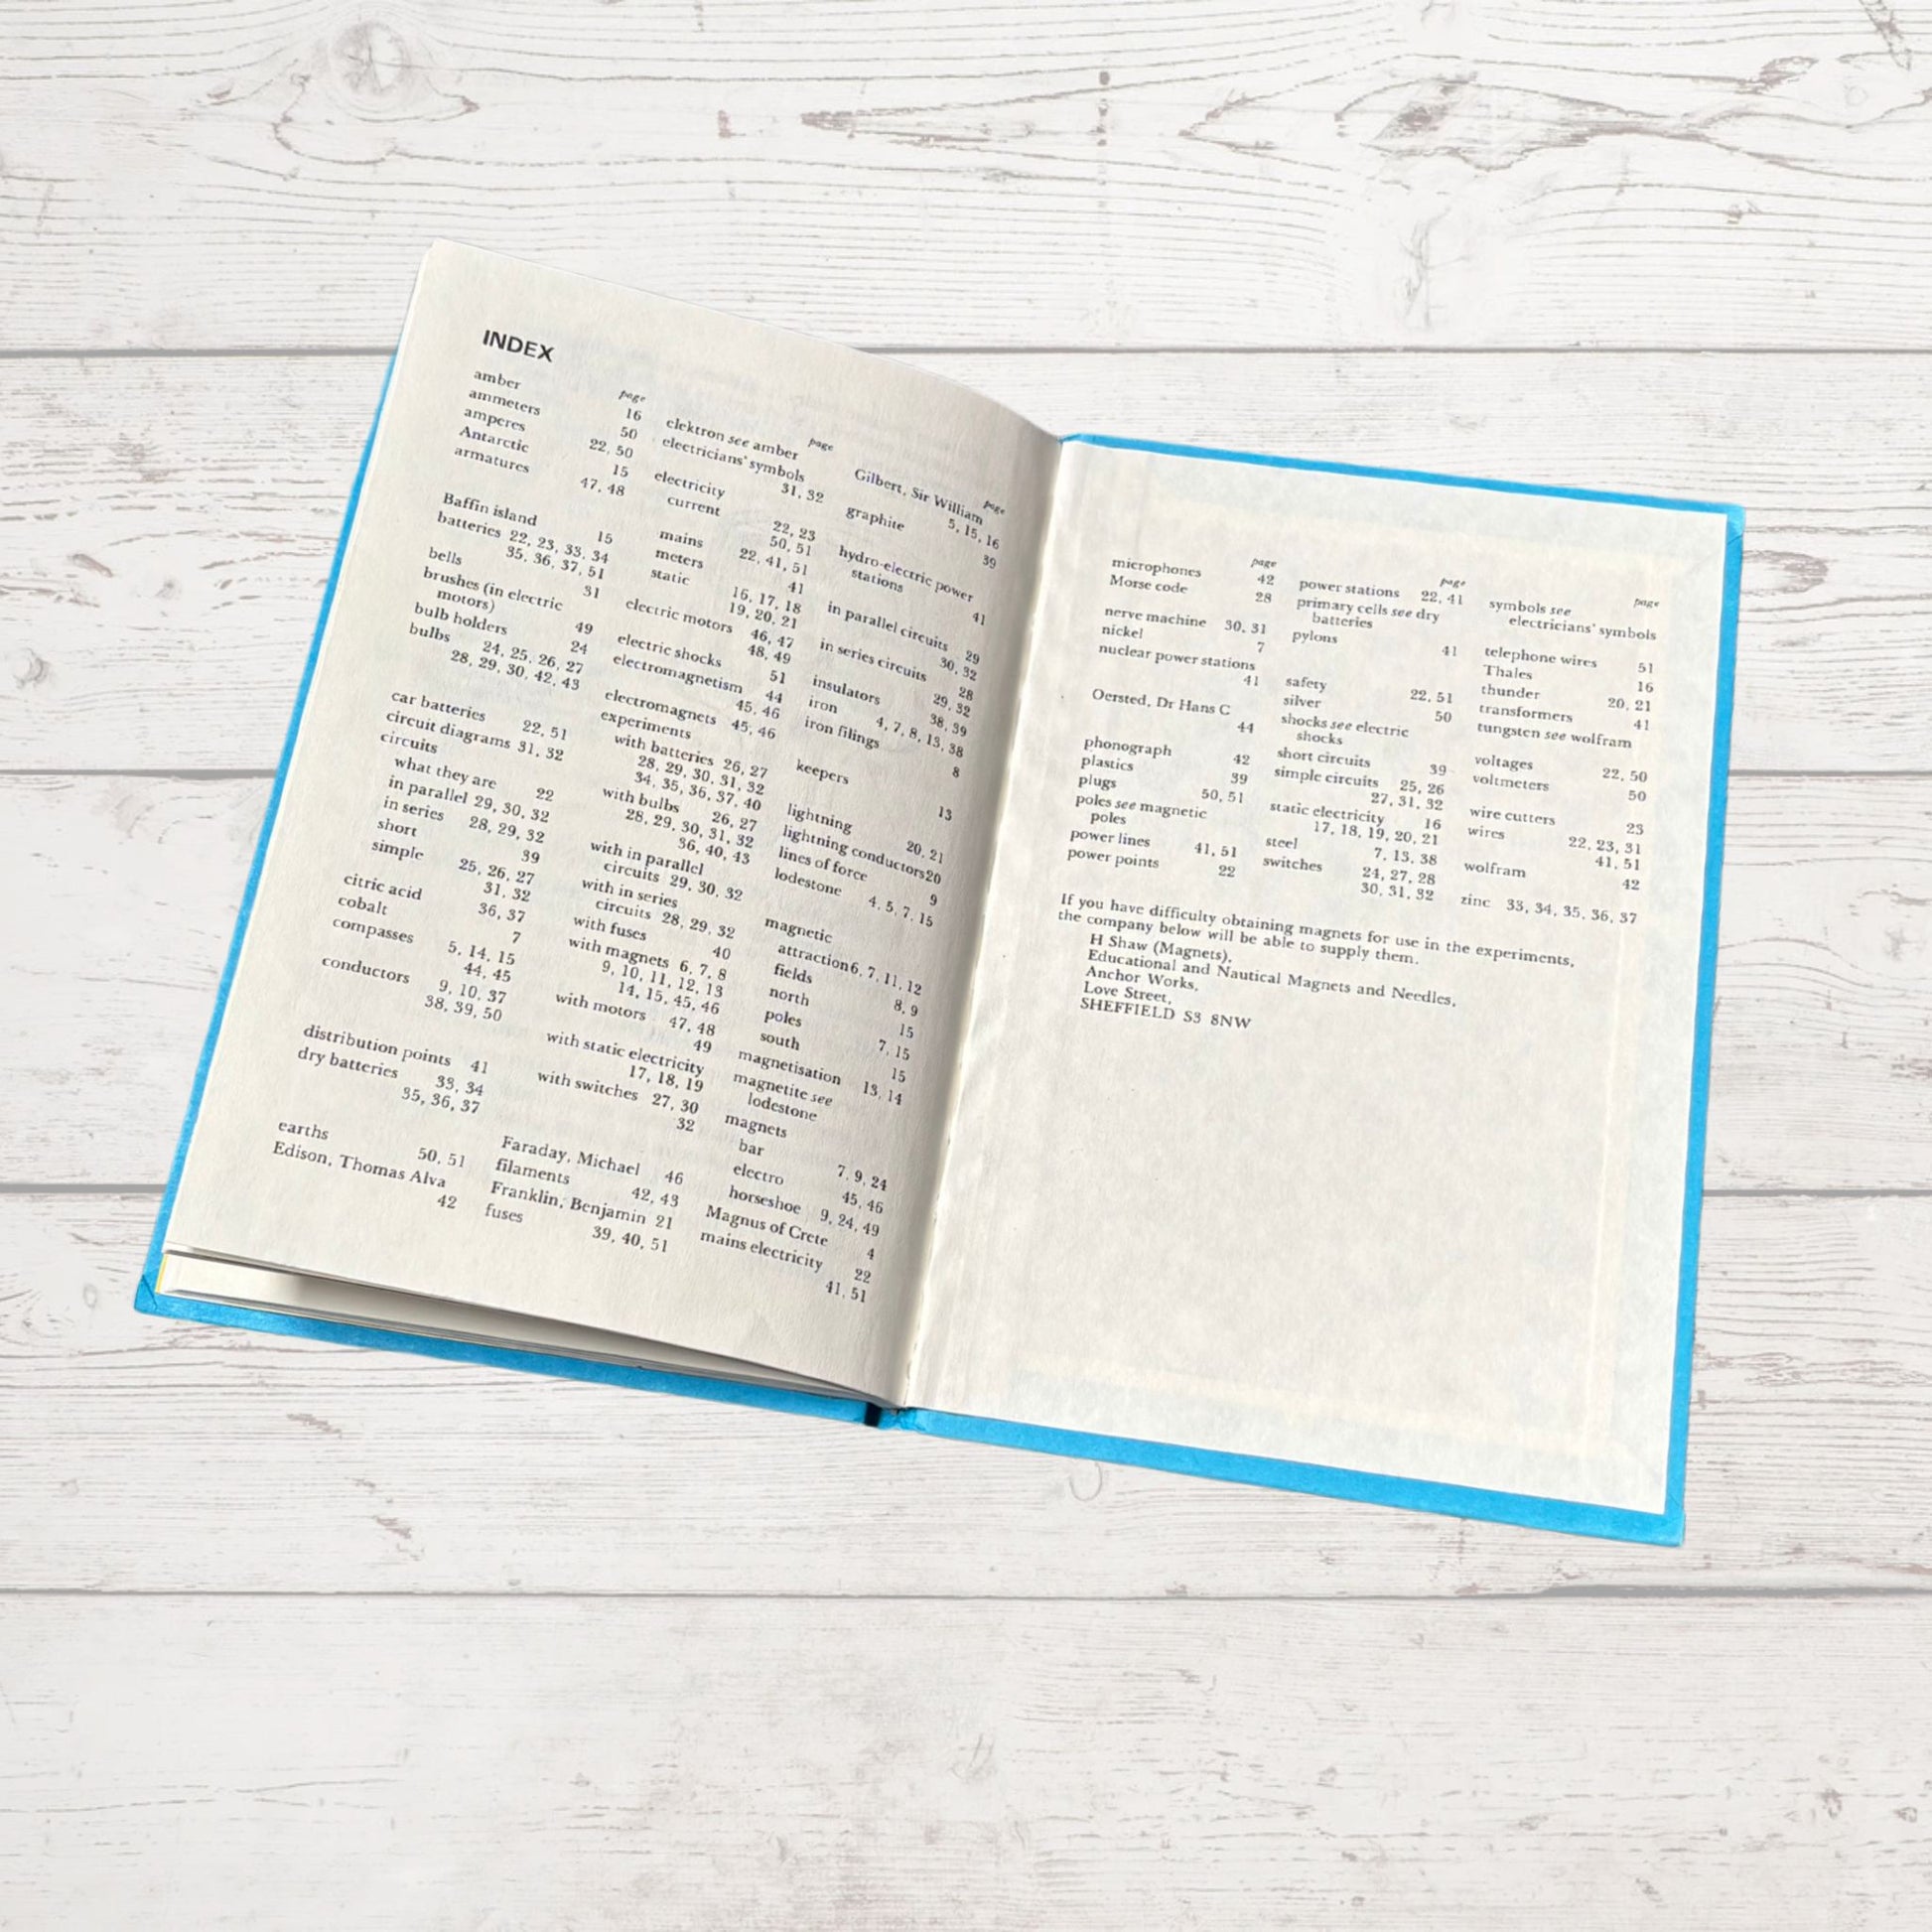 INDEX
page
amber 16
ammeters 50
amperes 22, 50
Antarctic 15
armatures 47, 48
Baffin island 15
batteries 22, 23, 33, 34
35, 36, 37, 51
bells 31
brushes (in electric
motors) 49
bulb holders 24
bulbs 24, 25, 26, 27
28, 29, 30, 42, 43
car batteries 22, 51
circuit diagrams 31, 32
circuits
what they are 22
in parallel 29, 30, 32
in series 28, 29, 32
short 39
simple 25, 26, 27
31, 32
citric acid 36, 37
cobalt 7
compasses 5, 14, 15
44, 45
conductors 9, 10, 37
38, 39, 50
distribution points 41
dry batteries 33, 34
35, 36, 37
earths 50, 51
Edison, Thomas Alva
42
page
elektron see amber
electricians' symbols
31, 32
electricity
current 22, 23
50, 51
mains 22, 41, 51
meters 41
static 16, 17, 18
19, 20, 21
electric motors 46, 47
48, 49
electric shocks 51
electromagnetism 44
45, 46
electromagnets 45, 46
experiments
with batteries 26, 27
28, 29, 30, 31, 32
34, 35, 36, 37, 40
with bulbs 26, 27
28, 29, 30, 31, 32
36, 40, 43
with in parallel
circuits 29, 30, 32
with in series
circuits 28, 29, 32
with fuses 40
with magnets 6, 7, 8
9, 10, 11, 12, 13
14, 15, 45, 46
with motors 47, 48
49
with static electricity
17, 18, 19
with switches 27, 30
32
Faraday, Michael 46
filaments 42, 43
Franklin, Benjamin 21
fuses 39, 40, 51
page
Gilbert, Sir William
5, 15, 16
graphite 39
hydro-electric power
stations 41
in parallel circuits 29
30, 32
in series circuits 28
29, 32
insulators 38, 39
iron 4, 7, 8, 13, 38
iron filings 8
keepers 13
lightning 20, 21
lightning conductors 20
lines of force 9
lodestone 4, 5, 7, 15
magnetic
attraction 6, 7, 11, 12
fields 8, 9
north 15
poles 7, 15
south 15
magnetisation 13, 14
magnetite see
lodestone
magnets
bar 7, 9, 24
electro 45, 46
horseshoe 9, 24, 49
Magnus of Crete 4
mains electricity 22
41, 51
page
microphones 42
Morse code 28
nerve machine 30, 31
nickel 7
nuclear power stations
41
Oersted, Dr Hans C
44
phonograph 42
plastics 39
plugs 50, 51
poles see magnetic
poles
power lines 41, 51
power points 22
page
power stations 22, 41
primary cells see dry
batteries
pylons 41
safety 22, 51
silver 50
shocks see electric
shocks
short circuits 39
simple circuits 25, 26
27, 31, 32
static electricity 16
17, 18, 19, 20, 21
steel 7, 13, 38
switches 24, 27, 28
30, 31, 32
page
symbols see
electricians' symbols
telephone wires 51
Thales 16
thunder 20, 21
transformers 41
tungsten see wolfram
voltages 22, 50
voltmeters 50
wire cutters 23
wires 22, 23, 31
41, 51
wolfram 42
zinc 33, 34, 35, 36, 37
If you have difficulty obtaining magnets for use in the experiments,
the company below will be able to supply them.
H Shaw (Magnets),
Educational and Nautical Magnets and Needles,
Anchor Works,
Love Street,
SHEFFIELD S3 8NW